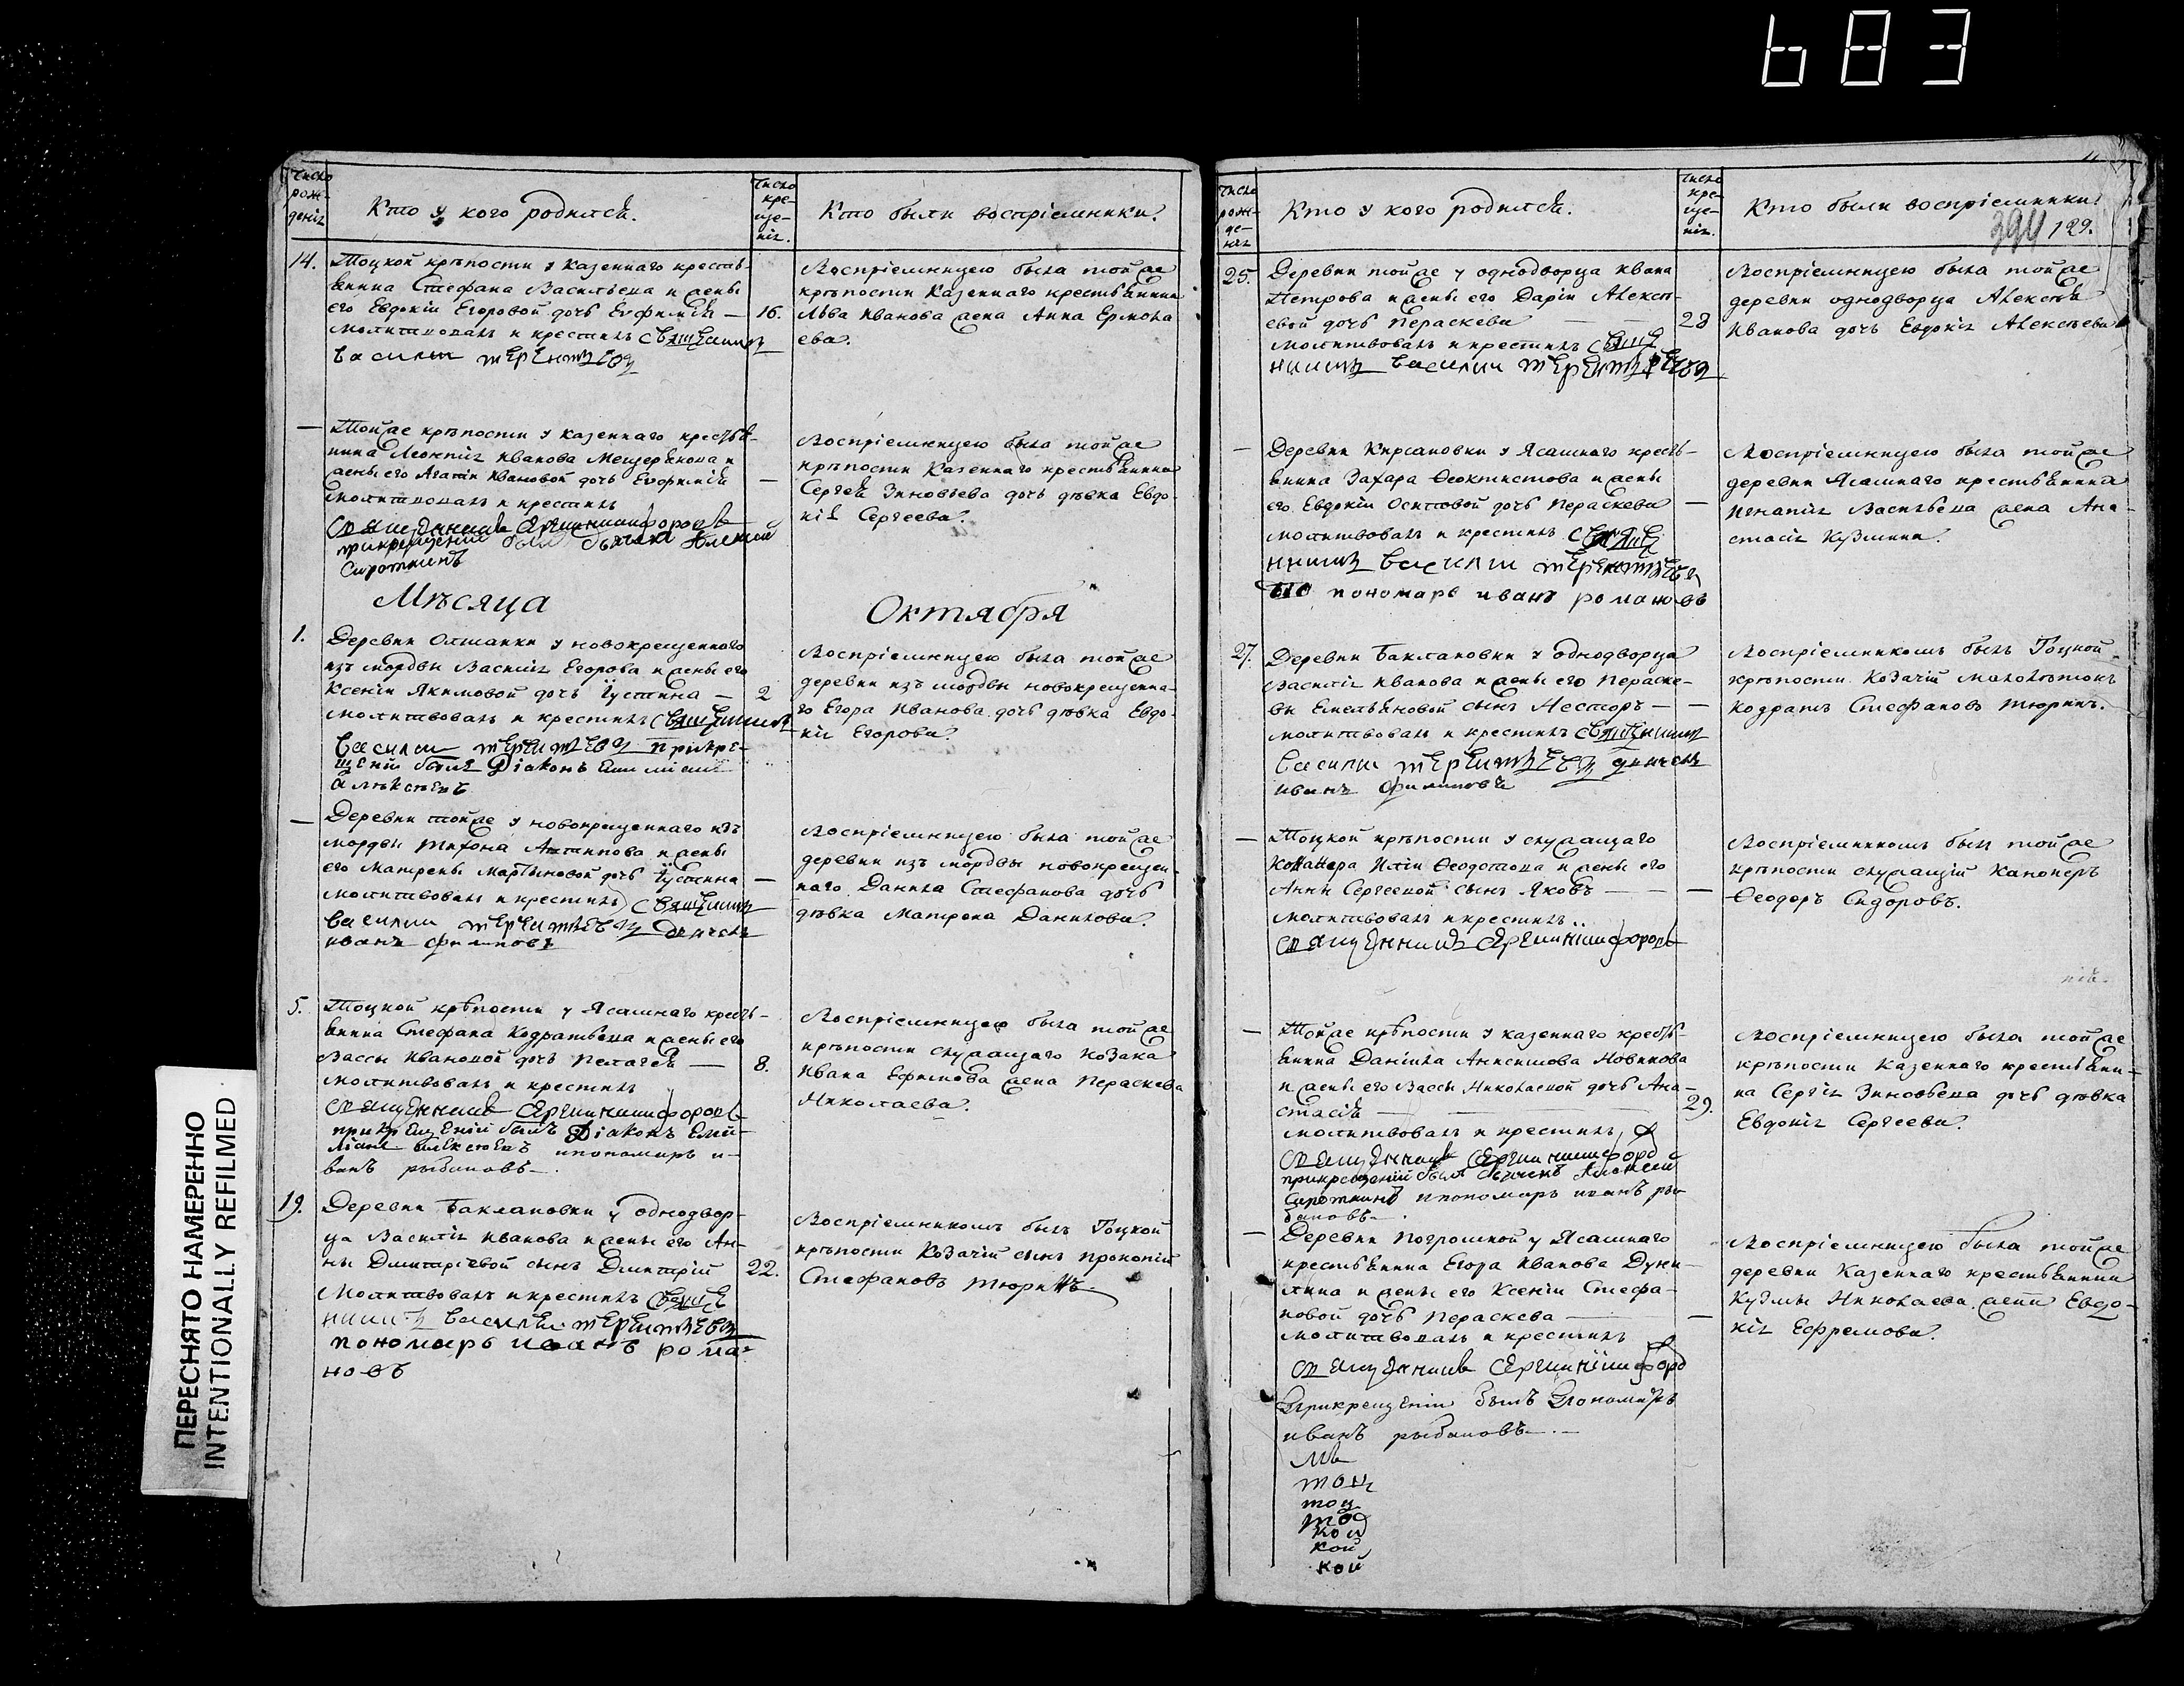 683
ПЕРЕСНЯТО НАМЕРЕННО
INTENTIONALLY REFILMED
Число рож-
денія
Кто у кого родился.
Число кре-
ще-
нія.
Кто были воспріемники.
14.
Тоцкой крѣпости у казеннаго кресть-
янина Стефана Васильева и жены
его Евдокіи Егоровой дочь Евфимія —
16.
молитвовалъ и крестилъ священникъ
василии терентьевъ
Воспріемницею была тойже
крѣпости казеннаго крестьянина
Льва Иванова жена Анна Ермола
ева.
—
Тойже крѣпости у казеннаго крестья-
нина Леонтія Иванова Мещерякова и
жены его Агапіи Ивановой дочь Евфимія
—
молитвовалъ и крестилъ
священникъ Сергии никифоровъ
прикрещеніи былъ дьячекъ Алексей
Сироткинъ
Воспріемницею была тойже
крѣпости казеннаго крестьянина
Сергея Зиновьева дочь дѣвка Евдо-
кія Сергеева.
Мѣсяца
Октября
1.
Деревни Олшанки у новокрещеннаго
изъ мордвы Василія Егорова и жены его
Ксеніи Якимовой дочь Іустина —
2
молитвовалъ и крестилъ священникъ
василии терентьевъ прикре-
щеніи былъ Діаконъ Емиліанъ
алексѣевъ
Воспріемницею была тойже
деревни изъ мордвы новокрещенна-
го Егора Иванова дочь дѣвка Евдо-
кія Егорова.
—
Деревни тойже у новокрещеннаго изъ
мордвы Тихона Антипова и жены
его Матрены Мартыновой дочь Іустина
—
молитвовалъ и крестилъ священникъ
василии терентьевъ дьячекъ
иванъ филиповъ
Воспріемницею была тойже
деревни изъ мордвы новокрещен-
наго Данила Стефанова дочь
дѣвка Матрона Данилова.
5.
Тоцкой крѣпости у Ясашнаго кресть-
янина Стефана Кодратьева и жены его
Вассы Ивановой дочь Пелагея —
8.
молитвовалъ и крестилъ
священникъ Сергии никифоровъ
прикрещеніи былъ Діаконъ Еми-
ліанъ алексѣевъ ипономарь и-
ванъ рыбаковъ
Воспріемницею была тойже
крѣпости служащаго козака
Ивана Ефимова жена Параскева
Николаева.
19.
Деревни Баклановки у однодвор-
ца Василія Иванова и жены его Ан-
ны Дмитріевой сынъ Дмитрій
22.
молитвовалъ и крестилъ свяще
нникъ василии терентьевъ
пономарь иванъ рома-
новъ
Воспріемникомъ былъ Тоцкой
крѣпости козачій сынъ Прокопій
Стефановъ Тюринъ
Число рож-
де-
нія
Кто у кого родился.
Число кре-
ще-
нія.
Кто были воспріемники.
394
129.
25.
Деревни тойже у однодворца Ивана
Петрова и жены его Даріи Алексѣ-
евой дочь Параскева — —
28
молитвовалъ и крестилъ свяще
нникъ василии терентьевъ
Воспріемницею была тойже
деревни однодворца Алексѣя
Иванова дочь Евдокія Алексѣева
—
Деревни Кирсановки у Ясашнаго кресть-
янина Захара Ѳеоктистова и жены
его Евдокіи Осиповой дочь Параскева
—
молитвовалъ и крестилъ свяще
нникъ василии терентьевъ
пономарь иванъ романовъ
Воспріемницею была тойже
деревни Ясашнаго крестьянина
Игнатія Васильева жена Ана-
стасія Кузмина.
27.
Деревни Баклановки у однодворца
Василія Иванова и жены его Параске-
вы Емельяновой сынъ Несторъ —
—
молитвовалъ и крестилъ священникъ
василии терентьевъ дьячекъ
иванъ филиповъ
Воспріемникомъ былъ Тоцкой
крѣпости козачій малолѣтокъ
Кодратъ Стефановъ Тюринъ.
—
Тоцкой крѣпости у служащаго
Иліи Ѳеодотова и жены его
Анны Сергеевой сынъ Яковъ —
—
молитвовалъ и крестилъ
священникъ Сергии никифоровъ
Воспріемникомъ былъ тойже
крѣпости служащій канонеръ
Ѳеодоръ Сидоровъ.
—
Тойже крѣпости у казеннаго кресть-
янина Даніила Анисимова Новикова
и жены его Вассы Николаевой дочь Ана-
стасія —
29.
молитвовалъ и крестилъ
священникъ Сергии никифоровъ
прикрещеніи былъ дьячекъ Алексей
Сироткинъ ипономарь иванъ ры-
баковъ
Воспріемницею была тойже
крѣпости казеннаго крестьяни-
на Сергія Зиновьева дочь дѣвка
Евдокія Сергеева.
—
Деревни Погромной у Ясашнаго
крестьянина Егора Иванова Дуни-
лина и жены его Ксеніи Стефа-
новой дочь Параскева —
—
молитвовалъ и крестилъ
священникъ Сергии никифоровъ
прикрещеніи былъ пономарь
иванъ рыбаковъ
Воспріемницею была тойже
деревни казеннаго крестьянина
Кузмы Николаева жена Евдо-
кія Ефремова.
тоц
тоц
кой
кой
кой